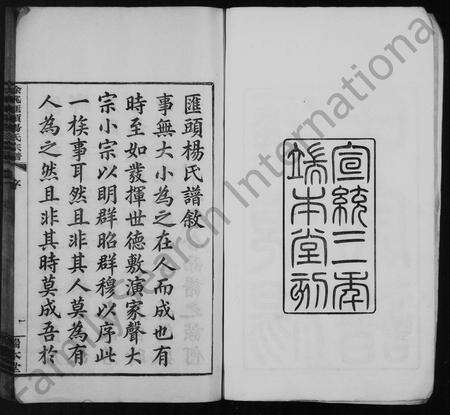 宣統三年
端本堂刊
匯頭楊氏譜敘
事無大小為之在人而成也有
時至如發揮世德敷演家聲大
宗小宗以明群昭群穆以序此
一族事耳然且非其人莫為有
人為之然且非其時莫成吾於
序
FamilySearch International